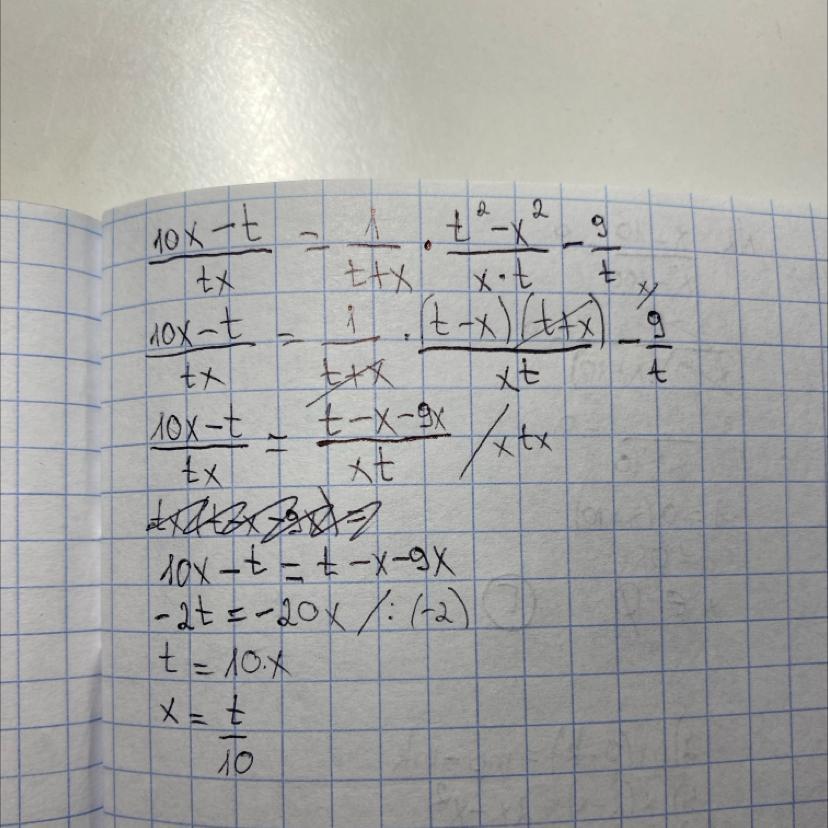 (10x-t)/(tx) = 1/(t+x) · (t²-x²)/(x·t) - 9/t
(10x-t)/(tx) = 1/(t+x) · ((t-x)(t+x))/(xt) - 9/t x/
(10x-t)/(tx) = (t-x-9x)/(xt) / x tx
10x-t = t-x-9x
-2t = -20x /:(-2)
t = 10·x
x = t/10